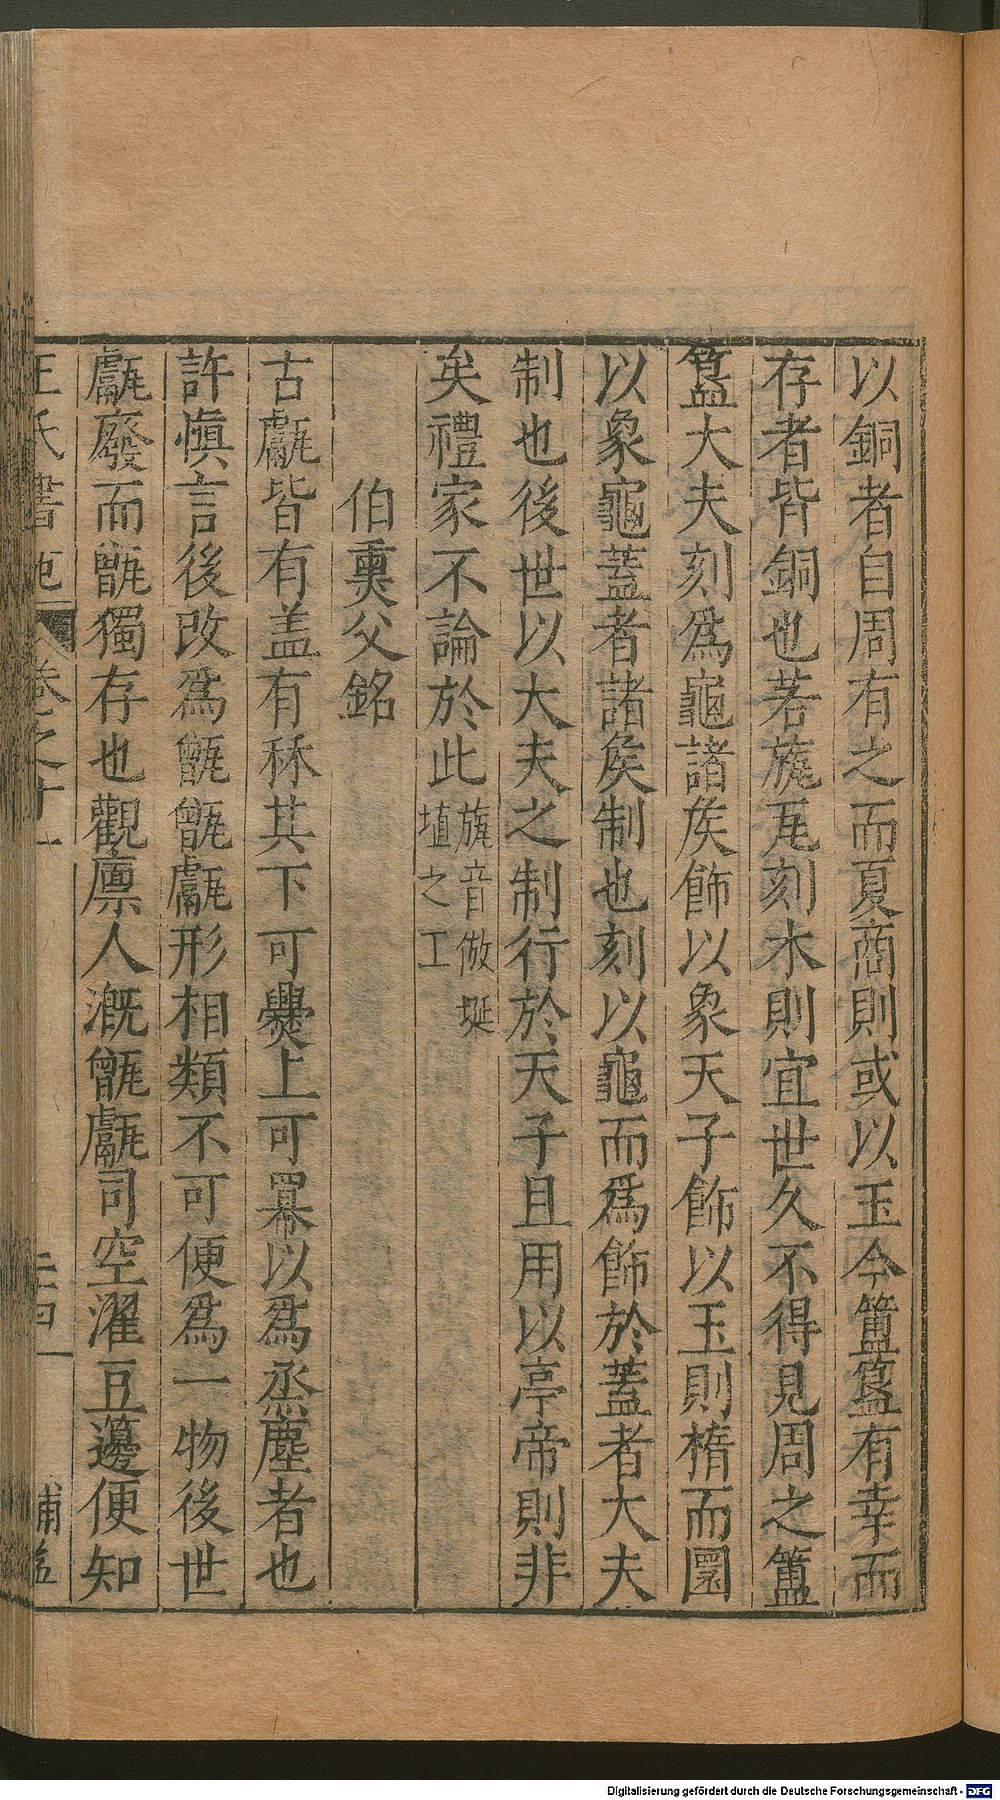 以銅者自周有之而夏商則或以玉今簠簋有幸而
存者皆銅也若旊瓦刻木則宜世久不得見周之簠
簋大夫刻爲龜諸矦飾以象天子飾以玉則楕而圜
以象龜蓋者諸矦制也刻以龜而爲飾於蓋者大夫
制也後世以大夫之制行於天子且用以亭帝則非
矣禮家不論於此旊音倣埏
埴之工
伯䵼父銘
古甗皆有盖有秝其下可爨上可冪以爲烝塵者也
許愼言後改爲甑甑甗形相類不可便爲一物後世
甗廢而甑獨存也觀廪人漑甑甗司空濯豆籩便知
王氏書苑 卷之十一
Digitalisierung gefördert durch die Deutsche Forschungsgemeinschaft - DFG